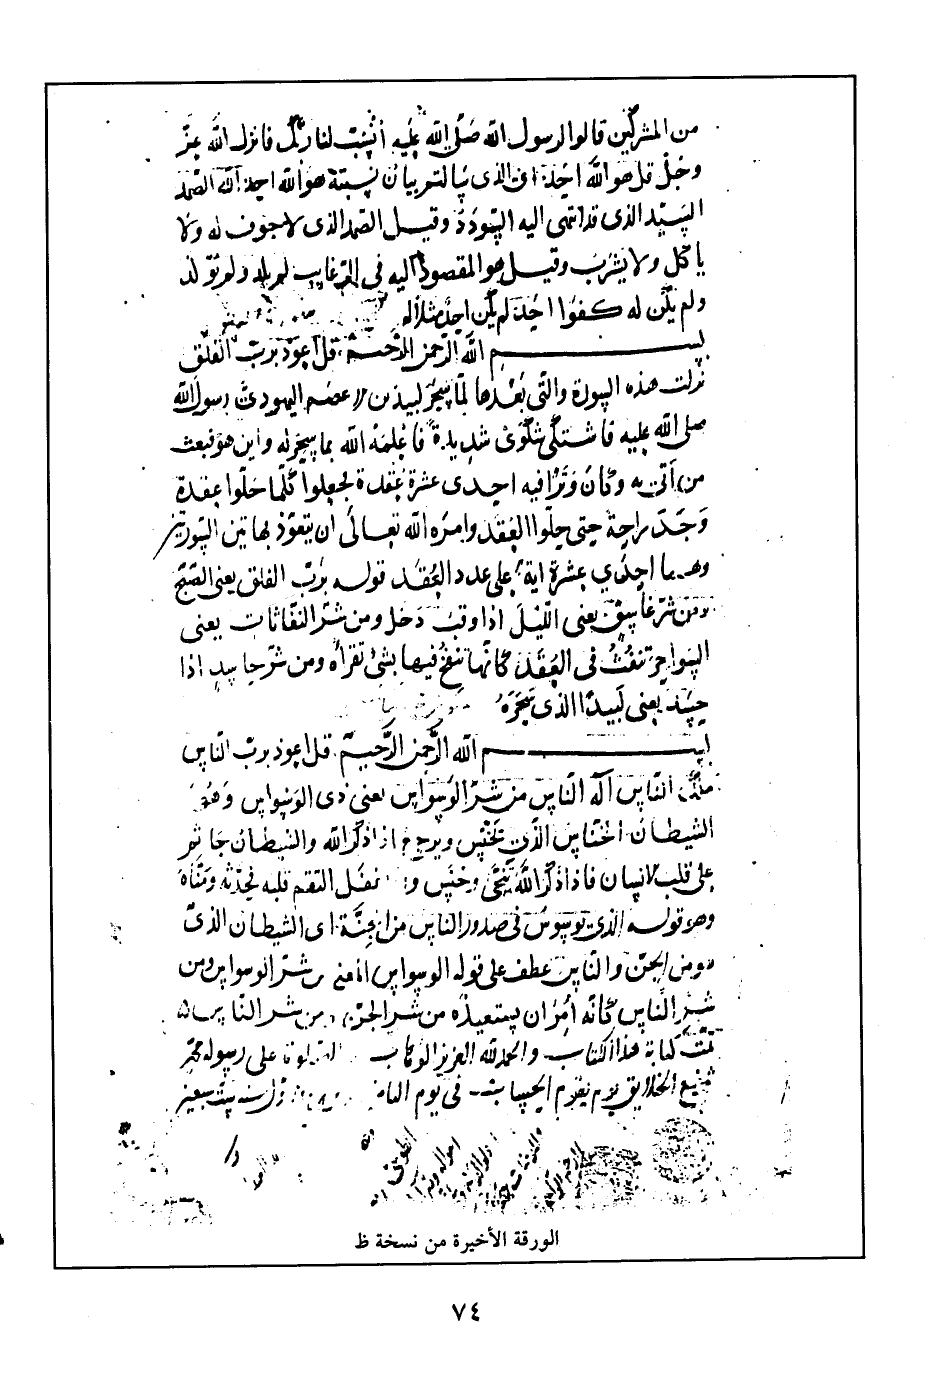 من المشركين قالوا لرسول الله صلى الله عليه انسب لنا ربك فانزل الله عز
وجل قل هو الله احد ان الذى سالتم بيان نسبته هو الله احد الله الصمد
السيد الذى قد انتهى اليه السودد وقيل الصمد الذى لا جوف له ولا
ياكل ولا يشرب وقيل هو المقصود اليه فى الرغايب لم يلد ولم يولد
ولم يكن له كفوا احد لم يكن احد مثلا له
بسم الله الرحمن الرحيم قل اعوذ برب الفلق
نزلت هذه السورة والتى بعدها لما سحر لبيد بن الاعصم اليهودى رسول الله
صلى الله عليه فاشتكى شكوى شديدة فاعلمه الله بما سحر له واين هو فبعث
من اتى به وكان وترا فيه احدى عشرة عقدة فجعلوا كلما حلوا عقدة
وجد راحة حتى حلوا العقد وامره الله تعالى ان يتعوذ بهاتين السورتين
وهما احدى عشرة اية على عدد العقد قوله برب الفلق يعنى الصبح
ومن شر غاسق يعنى الليل اذا وقب دخل ومن شر النفاثات يعنى
السواحر تنفث فى العقد كانها تنفخ فيها بشئ تقرأه ومن شر حاسد اذا
حسد يعنى لبيدا الذى سحره
بسم الله الرحمن الرحيم قل اعوذ برب الناس
ملك الناس اله الناس من شر الوسواس يعنى ذى الوسواس وهو
الشيطان الخناس الذى يخنس ويرجع اذا ذكر الله والشيطان جاثم
على قلب الانسان فاذا ذكر الله تنحى وخنس واذا غفل التقم قلبه فحدثه ومناه
وهو قوله الذى يوسوس فى صدور الناس من الجنة اى الشيطان الذى
هو من الجن والناس عطف على قوله الوسواس المعنى من شر الوسواس ومن
شر الناس كانه امر ان يستعيذ من شر الجن ومن شر الناس
تمت كتابة هذا الكتاب والحمد لله العزيز الوهاب والصلوة على رسوله محمد
شفيع الخلايق يوم يقوم الحساب فى يوم سنة ست سبعين
الورقة الأخيرة من نسخة ظ
٧٤